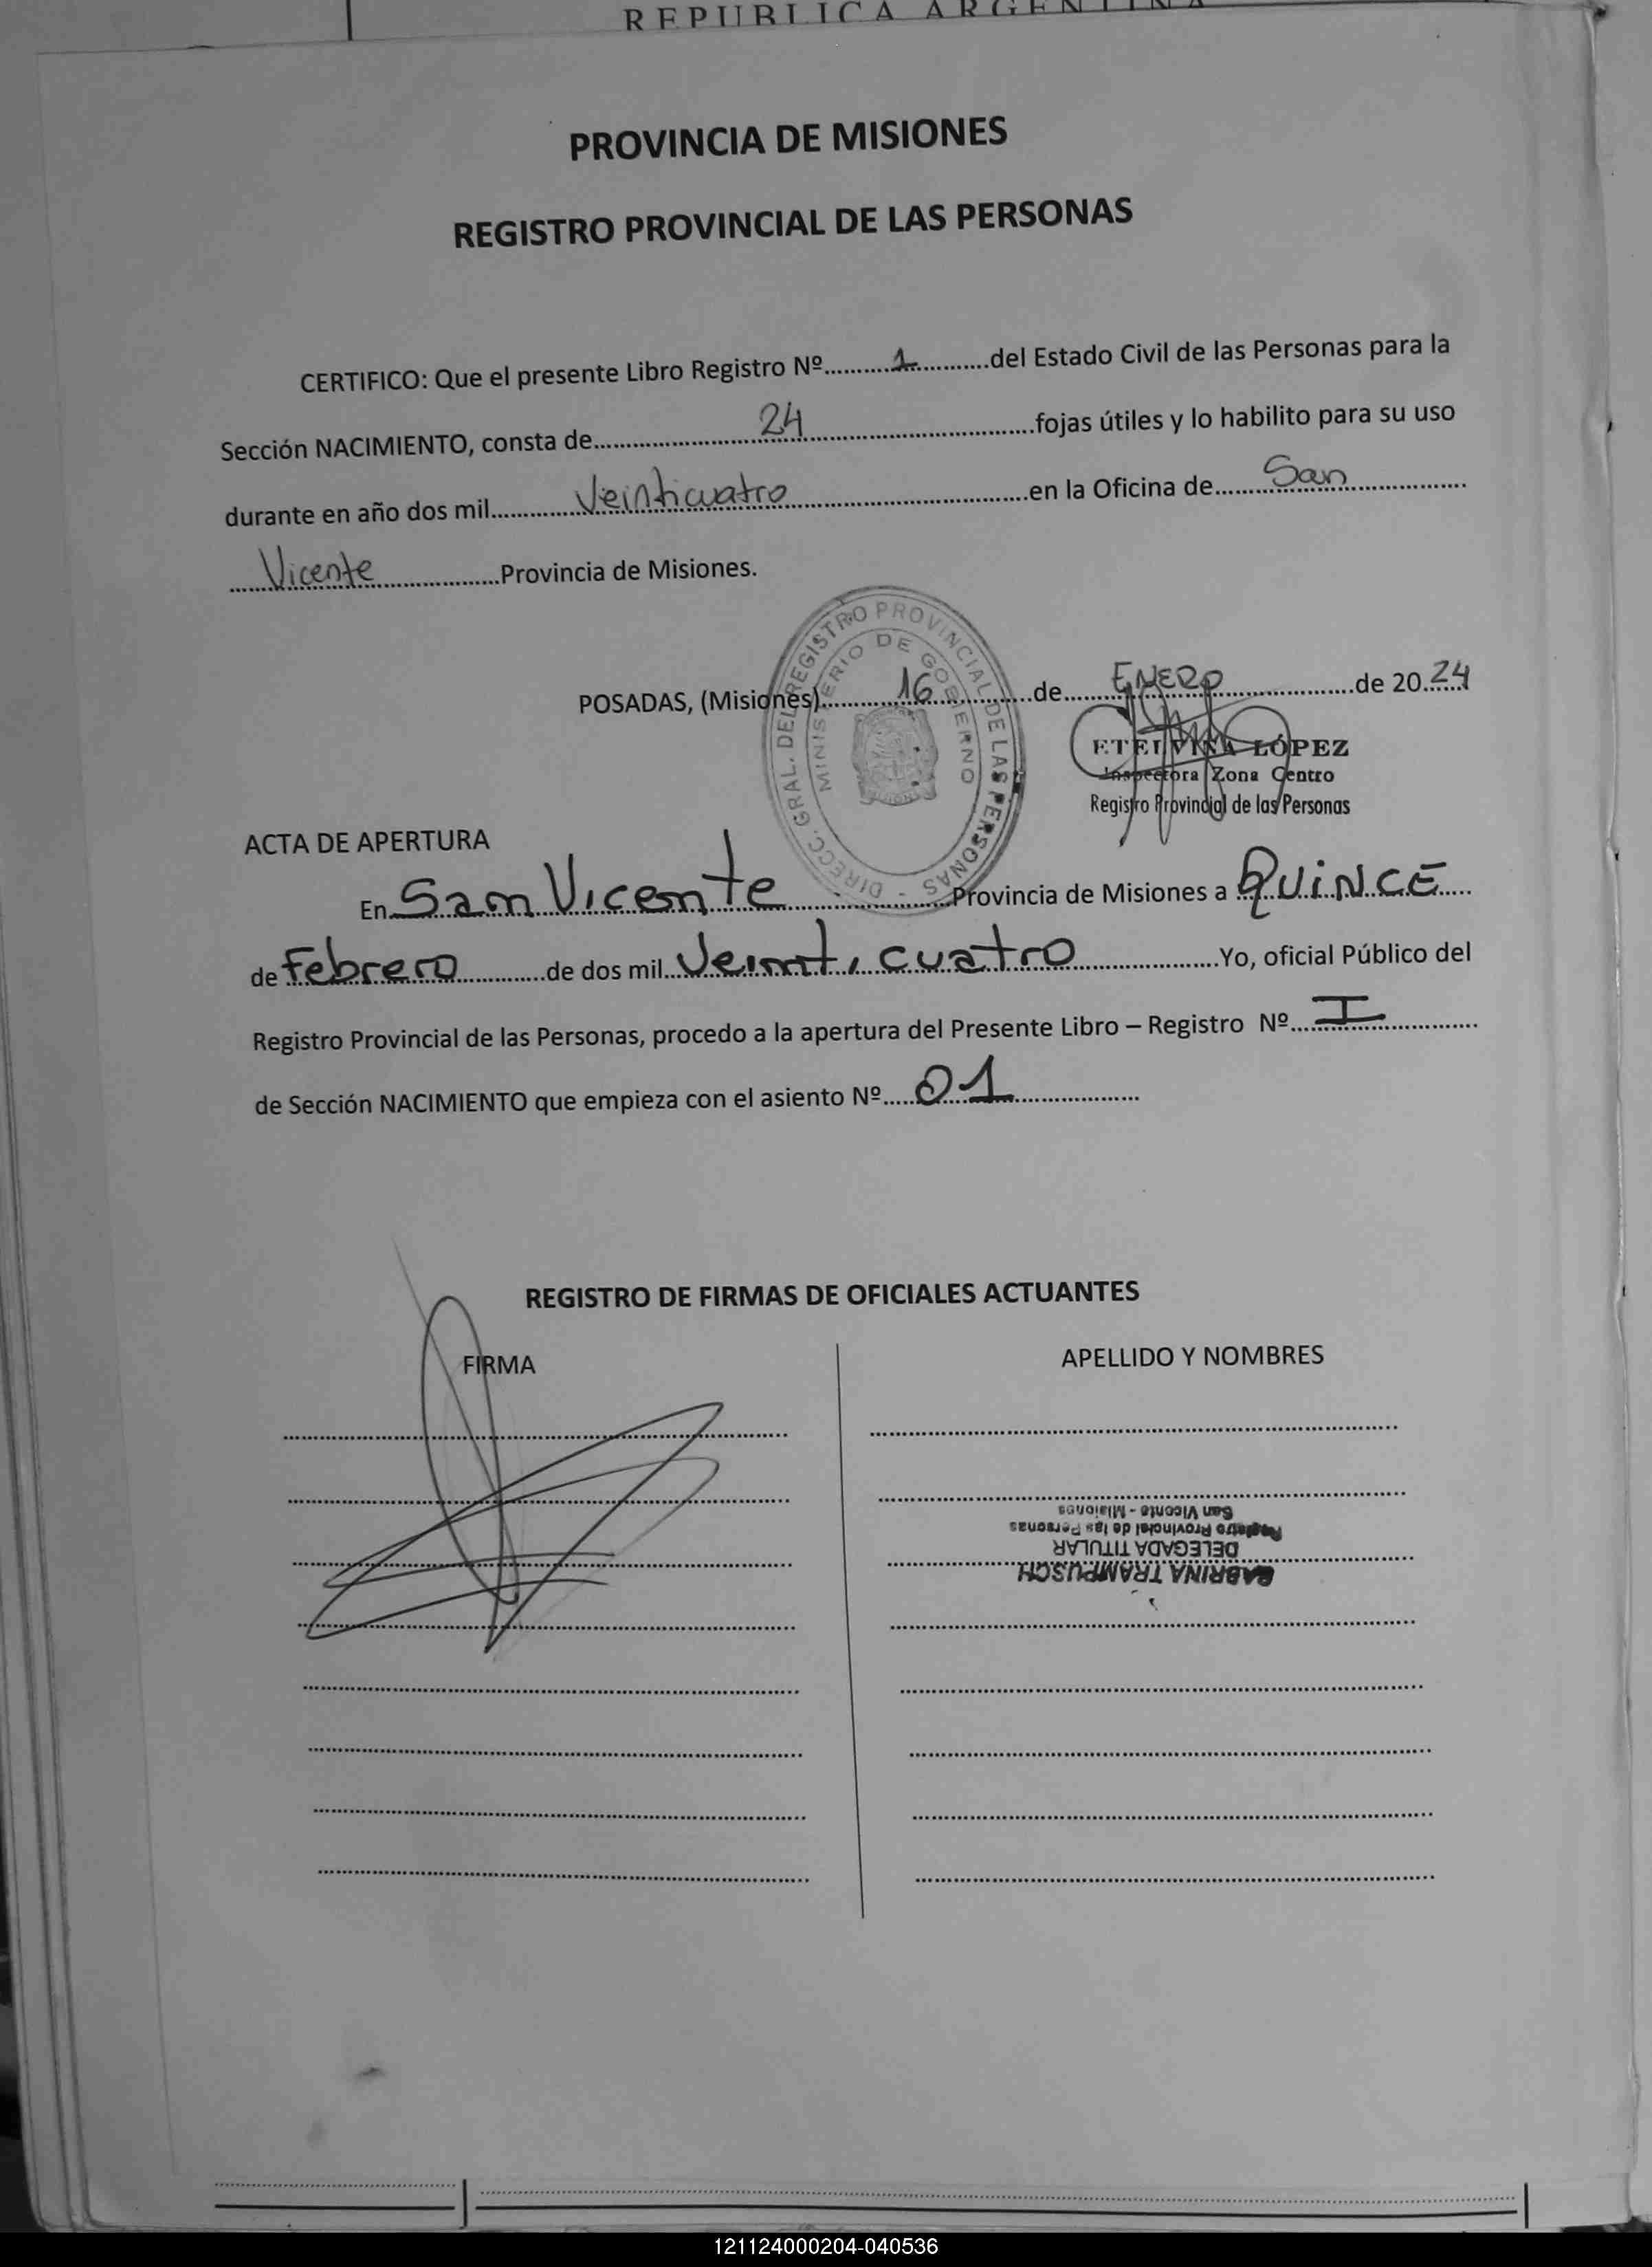 REPUBLICA ARGENTINA
PROVINCIA DE MISIONES
REGISTRO PROVINCIAL DE LAS PERSONAS
CERTIFICO: Que el presente Libro Registro Nº..........1...........del Estado Civil de las Personas para la
Sección NACIMIENTO, consta de..........24..........fojas útiles y lo habilito para su uso
durante en año dos mil..........Veinticuatro..........en la Oficina de..........San..........
..........Vicente..........Provincia de Misiones.
DIRECC. GRAL. DEL REGISTRO PROVINCIAL DE LAS PERSONAS -
MINISTERIO DE GOBIERNO
MISIONES
POSADAS, (Misiones)..........16..........de..........ENERO..........de 20..24
ETELVINA LÓPEZ
Inspectora Zona Centro
Registro Provincial de las Personas
ACTA DE APERTURA
En San Vicente..........Provincia de Misiones a QUINCE.....
de Febrero..........de dos mil..Veinti cuatro..........Yo, oficial Público del
Registro Provincial de las Personas, procedo a la apertura del Presente Libro – Registro Nº.....I..........
de Sección NACIMIENTO que empieza con el asiento Nº.....01..........
REGISTRO DE FIRMAS DE OFICIALES ACTUANTES
FIRMA
APELLIDO Y NOMBRES
SABRINA TRAMPUSCH
DELEGADA TITULAR
Registro Provincial de las Personas
San Vicente - Misiones
121124000204-040536